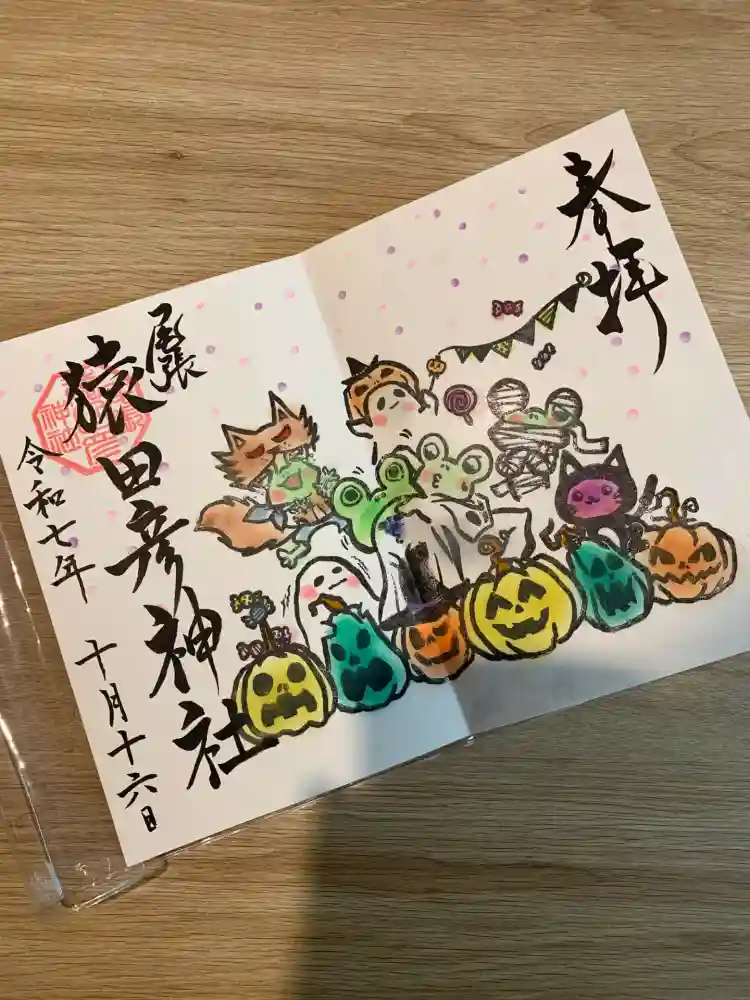 奉拝
尾張
猿田彦神社
令和七年 十月十六日